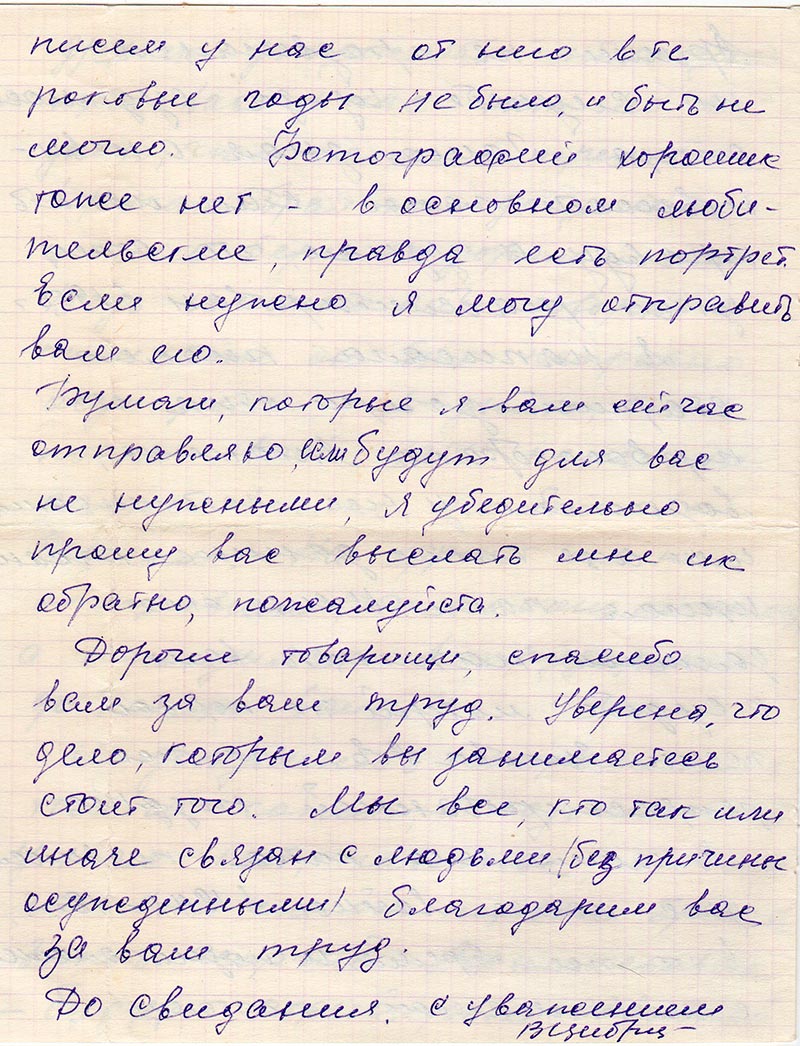 писем у нас от него в те
роковые годы не было, и быть не
могло. Фотографий хороших
тоже нет - в основном люби-
тельские, правда есть портрет.
Если нужно я могу отправить
вам его.
Бумаги, которые я вам сейчас
отправляю, если будут для вас
не нужными, я убедительно
прошу вас выслать мне их
обратно, пожалуйста.
Дорогие товарищи, спасибо
вам за ваш труд. Уверена, что
дело, которым вы занимаетесь
стоит того. Мы все, кто так или
иначе связан с людьми (без причины
осужденными) благодарим вас
за ваш труд.
До свидания. С уважением